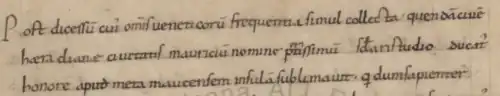 Post dicessū cui᷒ om̄is ueneticorū frequentia simul collecta quendā ciuē
haeradiane ciuitatis mauriciū nomine p̄tissimū sc̄laris studio ducat᷒
honore apud metamaucensem insulā sublimauit. qī dum sapienter